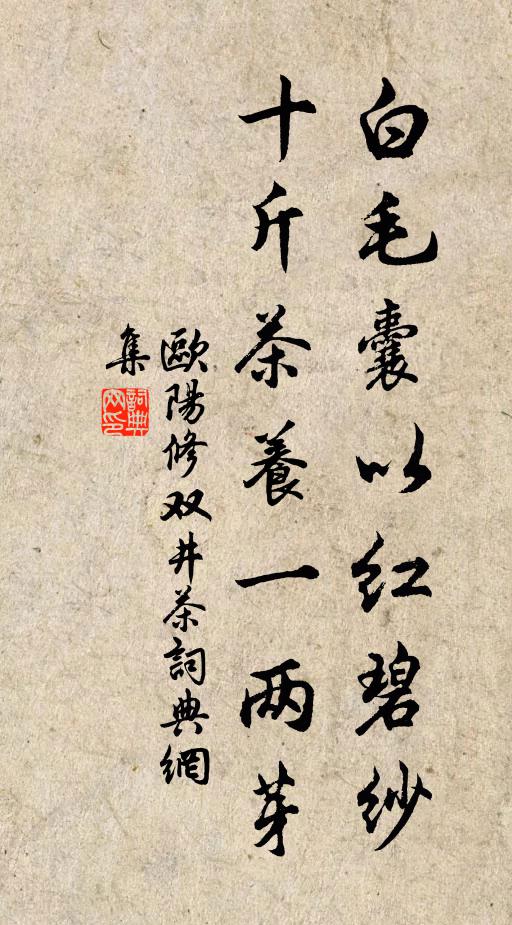 白毛囊以紅碧纱
十斤茶養一两芽
歐陽修双井茶詞典網
集
詞典
网印